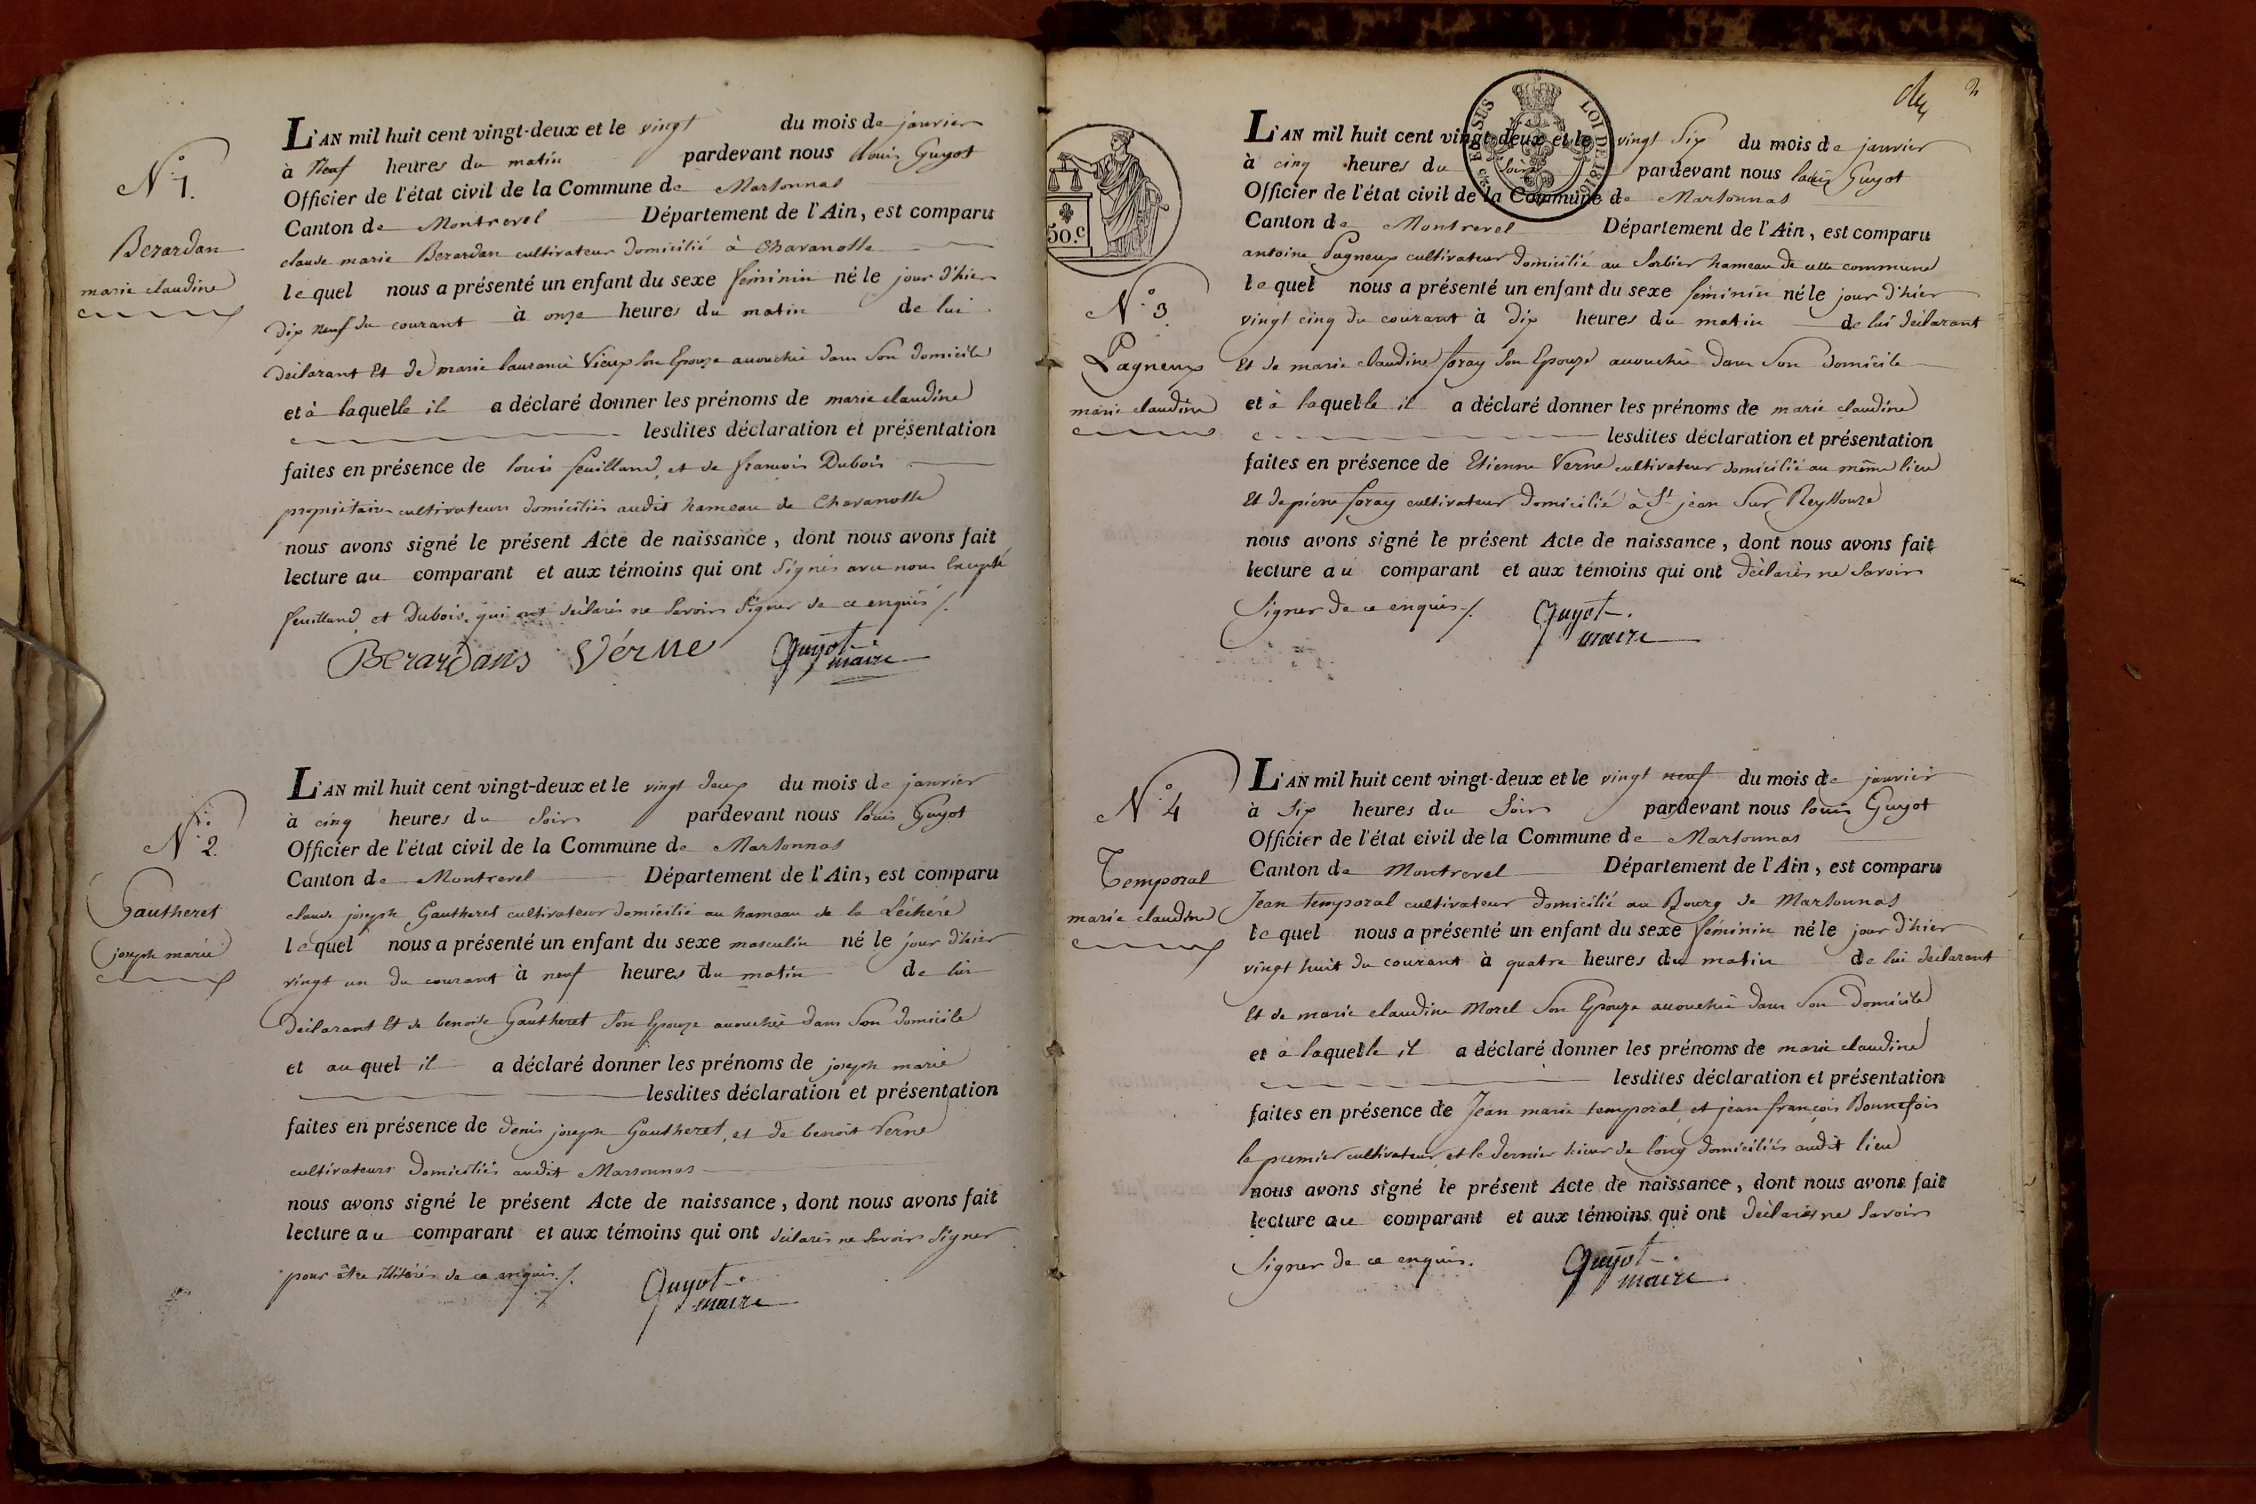 N.° 1.
Berardan
marie claudine
L'AN mil huit cent vingt-deux et le vingt du mois de janvier
à Neuf heures du matin pardevant nous Louis Guyot
Officier de l'état civil de la Commune de Marsonnas
Canton de Montrevel Département de l'Ain, est comparu
claude marie Berardan cultivateur domicilié à Chavanolle
lequel nous a présenté un enfant du sexe féminin né le jour d'hier
dix neuf du courant à onze heures du matin de lui
déclarant Et de marie laurance Vieux son Epouze accouchée dans son domicile
et à laquelle il a déclaré donner les prénoms de marie claudine
lesdites déclaration et présentation
faites en présence de louis feuilland, et de françois Dubois
propriétaires cultivateurs domiciliés audit hameau de Chavanolle
nous avons signé le présent Acte de naissance, dont nous avons fait
lecture au comparant et aux témoins qui ont signés avec nous Excepté
feuilland et Dubois, qui ont déclarés ne savoir signer de ce enquis ./.
Berardans Verne Guyot maire
N.° 2.
Gautheret
joseph marie
L'AN mil huit cent vingt-deux et le vingt deux du mois de janvier
à cinq heures du soir pardevant nous louis Guyot
Officier de l'état civil de la Commune de Marsonnas
Canton de Montrevel Département de l'Ain, est comparu
claude joseph Gautheret cultivateur domicilié au hameau de la Léchère
lequel nous a présenté un enfant du sexe masculin né le jour d'hier
vingt un du courant à neuf heures du matin de lui
déclarant Et de benoite Gautheret son Epouze accouchée dans son domicile
et auquel il a déclaré donner les prénoms de joseph marie
lesdites déclaration et présentation
faites en présence de denis joseph Gautheret, et de benoit Verne
cultivateurs domiciliés audit Marsonnas
nous avons signé le présent Acte de naissance, dont nous avons fait
lecture au comparant et aux témoins qui ont déclarés ne savoir signer
pour être illitérés de ce enquis ./.
Guyot maire
2
BES SUS
LOI DE 1816
50.c
N.° 3
Pagneux
marie claudine
L'AN mil huit cent vingt-deux et le vingt six du mois de janvier
à cinq heures du soir pardevant nous louis Guyot
Officier de l'état civil de la Commune de Marsonnas
Canton de Montrevel Département de l'Ain, est comparu
antoine Pagneux cultivateur domicilié au Sorbier hameau de cette commune
lequel nous a présenté un enfant du sexe féminin né le jour d'hier
vingt cinq du courant à dix heures du matin de lui déclarant
Et de marie claudine foray son Epouze accouchée dans son domicile
et à laquelle il a déclaré donner les prénoms de marie claudine
lesdites déclaration et présentation
faites en présence de Etienne Verne cultivateur domicilié au même lieu
Et de pierre foray cultivateur domicilié à St jean sur Reyssouze
nous avons signé le présent Acte de naissance, dont nous avons fait
lecture au comparant et aux témoins qui ont déclarés ne savoir
signer de ce enquis ./.
Guyot maire
N.° 4
Temporal
marie claudine
L'AN mil huit cent vingt-deux et le vingt neuf du mois de janvier
à six heures du soir pardevant nous louis Guyot
Officier de l'état civil de la Commune de Marsonnas
Canton de Montrevel Département de l'Ain, est comparu
Jean temporal cultivateur domicilié au Bourg de Marsonnas
lequel nous a présenté un enfant du sexe féminin né le jour d'hier
vingt huit du courant à quatre heures du matin de lui déclarant
Et de marie claudine Morel son Epouze accouchée dans son domicile
et à laquelle il a déclaré donner les prénoms de marie claudine
lesdites déclaration et présentation
faites en présence de Jean marie temporal, et jean françois Bonnefois
le premier cultivateur, et le dernier sieur de long domiciliés audit lieu
nous avons signé le présent Acte de naissance, dont nous avons fait
lecture au comparant et aux témoins qui ont déclarés ne savoir
signer de ce enquis.
Guyot maire